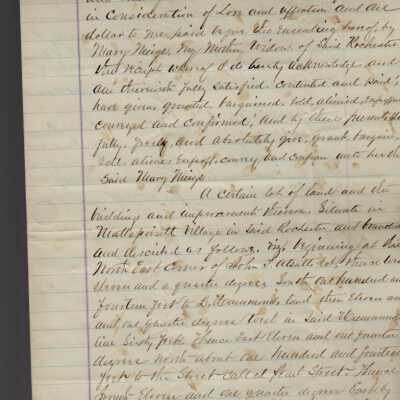 in Consideration of Love and affection and one
dollar to me paid before the Ensealing hereof by
Mary Meigs, my Mother, Widow, of Said Rochester
the receipt whereof I do hereby acknowledge and
am therewith fully Satisfied, contented and paid,
have given, granted, bargained, sold, aliened,
conveyed and confirmed, and by these presents do
fully, freely, and absolutely give, grant, bargain,
Sell, aliene, Enfeoff, convey and confirm unto her the
Said Mary Meigs
A certain lot of land and the
buildings and improvement thereon Situate in
Mattapoisett village in Said Rochester, and bounded
and described as follows. Viz, beginning at the
North East Corner of John lot, thence West
Eleven and a quarter degrees South one hundred and
fourteen feet to Hammonds land then Eleven and
and one quarter degrees West in said Hammonds
line Sixty feet thence East Eleven and one quarter
degrees north about one Hundred and fourteen
feet to the Street call'd Street. Thence
South Eleven and one quarter degrees East by